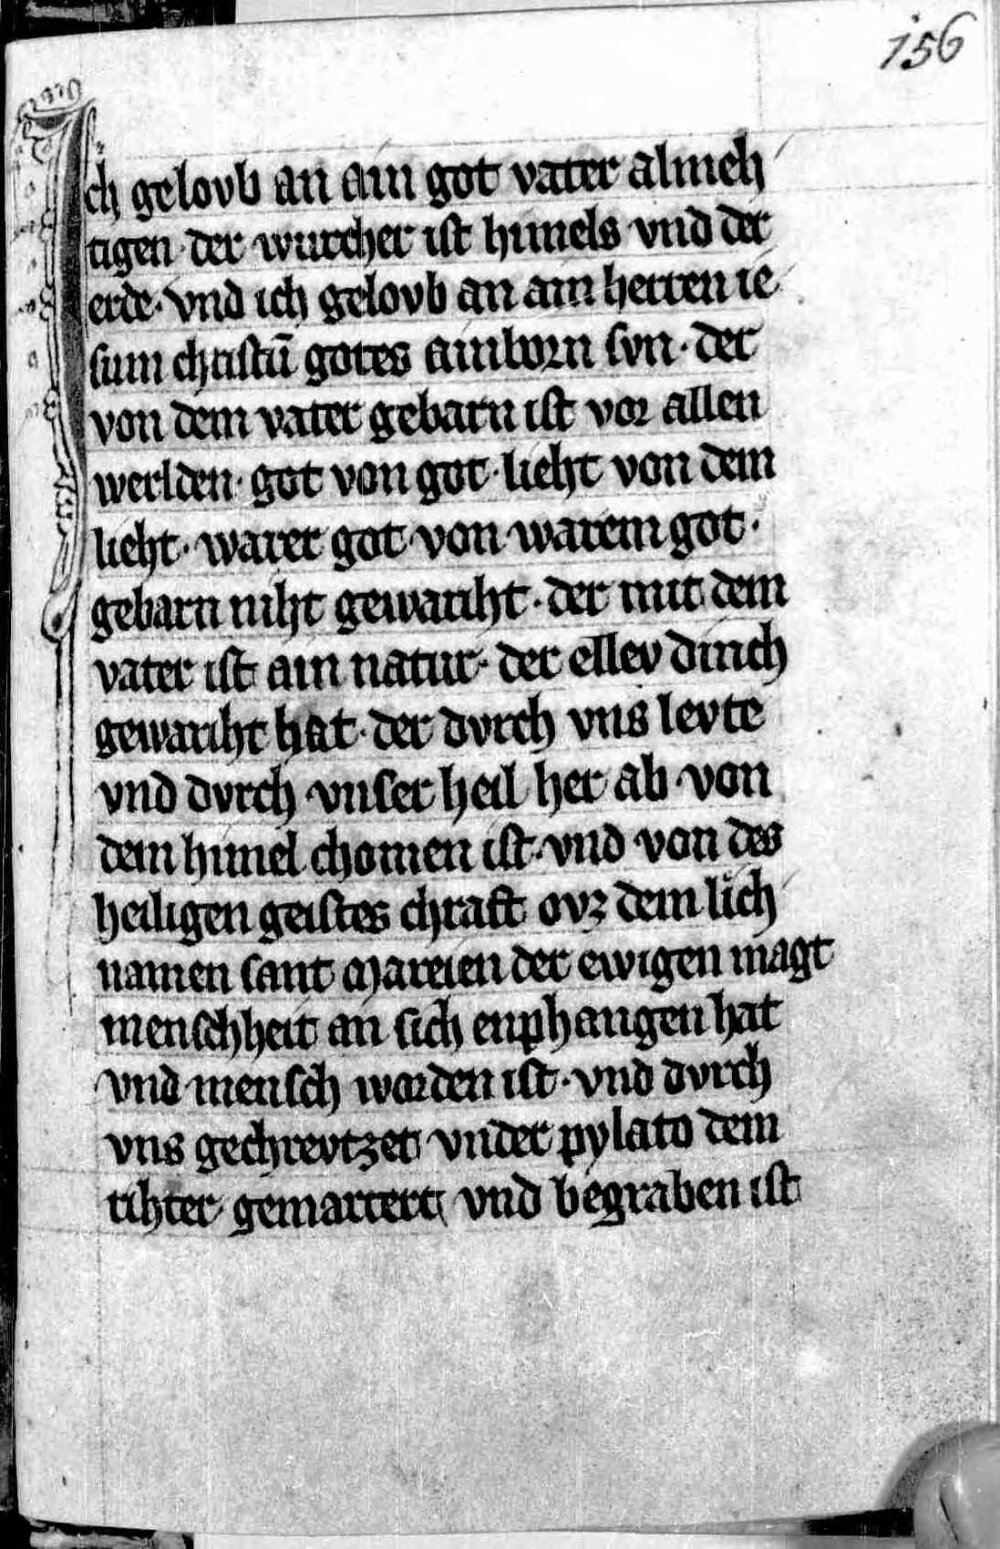 156
Ich gelovb an ain got vater almeh
tigen · der wurcher ist himels vnd der
erde · vnd ich gelovb an ain herren ie
sum christū gotes ainborn svn · der
von dem vater geborn ist vor allen
werlden · got von got · lieht von dem
lieht · warer got von warem got ·
geborn niht gewariht · der mit dem
vater ist ain natur · der ellev dinch
gewariht hat · der dvrch vns levte
vnd dvrch vnser heil her ab von
dem himel chomen ist · vnd von des
heiligen geistes chraft ovz dem lich
namen sant Mareien der ewigen magt
menschheit an sich enphangen hat
vnd mensch worden ist · vnd dvrch
vns gechrevtzet vnder pylato dem
rihter gemartert vnd begraben ist